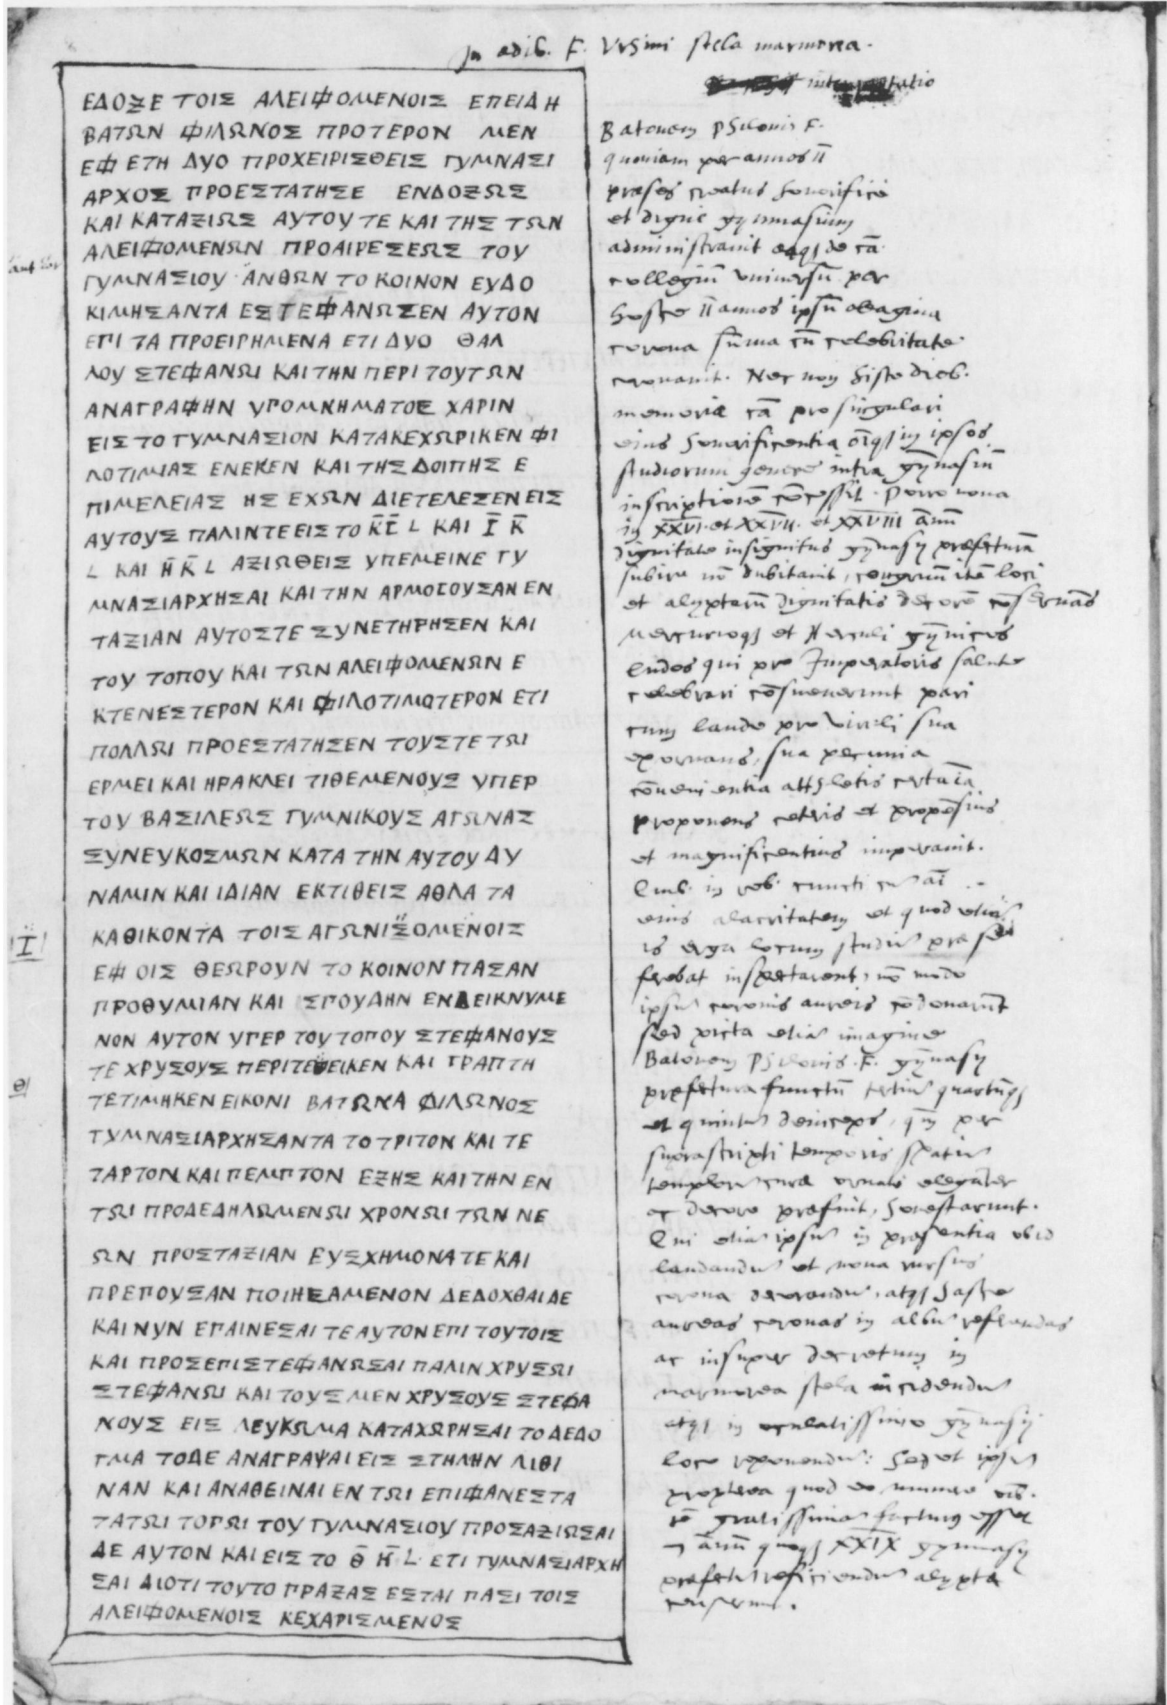 In aedib. F. Ursini stela marmorea.
interpretatio
ΕΔΟΞΕ ΤΟΙΣ ΑΛΕΙΦΟΜΕΝΟΙΣ ΕΠΕΙΔΗ
ΒΑΤΩΝ ΦΙΛΩΝΟΣ ΠΡΟΤΕΡΟΝ ΜΕΝ
ΕΦ ΕΤΗ ΔΥΟ ΠΡΟΧΕΙΡΙΣΘΕΙΣ ΓΥΜΝΑΣΙ
ΑΡΧΟΣ ΠΡΟΕΣΤΑΤΗΣΕ ΕΝΔΟΞΩΣ
ΚΑΙ ΚΑΤΑΞΙΩΣ ΑΥΤΟΥ ΤΕ ΚΑΙ ΤΗΣ ΤΩΝ
ΑΛΕΙΦΟΜΕΝΩΝ ΠΡΟΑΙΡΕΣΕΩΣ ΤΟΥ
ΓΥΜΝΑΣΙΟΥ ΑΝΘΩΝ ΤΟ ΚΟΙΝΟΝ ΕΥΔΟ
ΚΙΜΗΣΑΝΤΑ ΕΣΤΕΦΑΝΩΣΕΝ ΑΥΤΟΝ
ΕΠΙ ΤΑ ΠΡΟΕΙΡΗΜΕΝΑ ΕΤΙ ΔΥΟ ΘΑΛ
ΛΟΥ ΣΤΕΦΑΝΩΙ ΚΑΙ ΤΗΝ ΠΕΡΙ ΤΟΥΤΩΝ
ΑΝΑΓΡΑΦΗΝ ΥΠΟΜΝΗΜΑΤΟΣ ΧΑΡΙΝ
ΕΙΣ ΤΟ ΓΥΜΝΑΣΙΟΝ ΚΑΤΑΚΕΧΩΡΙΚΕΝ ΦΙ
ΛΟΤΙΜΙΑΣ ΕΝΕΚΕΝ ΚΑΙ ΤΗΣ ΔΟΙΠΗΣ Ε
ΠΙΜΕΛΕΙΑΣ ΗΣ ΕΧΩΝ ΔΙΕΤΕΛΕΣΕΝ ΕΙΣ
ΑΥΤΟΥΣ ΠΑΛΙΝ ΤΕ ΕΙΣ ΤΟ Κ̄Ϛ̄ L ΚΑΙ Ī Κ̄
L ΚΑΙ Η̄ Κ̄ L ΑΞΙΩΘΕΙΣ ΥΠΕΜΕΙΝΕ ΓΥ
ΜΝΑΣΙΑΡΧΗΣΑΙ ΚΑΙ ΤΗΝ ΑΡΜΟΣΟΥΣΑΝ ΕΝ
ΤΑΞΙΑΝ ΑΥΤΟΣ ΤΕ ΣΥΝΕΤΗΡΗΣΕΝ ΚΑΙ
ΤΟΥ ΤΟΠΟΥ ΚΑΙ ΤΩΝ ΑΛΕΙΦΟΜΕΝΩΝ Ε
ΚΤΕΝΕΣΤΕΡΟΝ ΚΑΙ ΦΙΛΟΤΙΜΟΤΕΡΟΝ ΕΤΙ
ΠΟΛΛΩΙ ΠΡΟΕΣΤΑΤΗΣΕΝ ΤΟΥΣ ΤΕ ΤΩΙ
ΕΡΜΕΙ ΚΑΙ ΗΡΑΚΛΕΙ ΤΙΘΕΜΕΝΟΥΣ ΥΠΕΡ
ΤΟΥ ΒΑΣΙΛΕΩΣ ΓΥΜΝΙΚΟΥΣ ΑΓΩΝΑΣ
ΣΥΝΕΥΚΟΣΜΩΝ ΚΑΤΑ ΤΗΝ ΑΥΤΟΥ ΔΥ
ΝΑΜΙΝ ΚΑΙ ΙΔΙΑΝ ΕΚΤΙΘΕΙΣ ΑΘΛΑ ΤΑ
ΚΑΘΙΚΟΝΤΑ ΤΟΙΣ ΑΓΩΝΙΞΟΜΕΝΟΙΣ
ΕΦ ΟΙΣ ΘΕΩΡΟΥΝ ΤΟ ΚΟΙΝΟΝ ΠΑΣΑΝ
ΠΡΟΘΥΜΙΑΝ ΚΑΙ ΣΠΟΥΔΗΝ ΕΝΔΕΙΚΝΥΜΕ
ΝΟΝ ΑΥΤΟΝ ΥΠΕΡ ΤΟΥ ΤΟΠΟΥ ΣΤΕΦΑΝΟΥΣ
ΤΕ ΧΡΥΣΟΥΣ ΠΕΡΙΤΕΘΕΙΚΕΝ ΚΑΙ ΓΡΑΠΤΗ
ΤΕΤΙΜΗΚΕΝ ΕΙΚΟΝΙ ΒΑΤΩΝΑ ΦΙΛΩΝΟΣ
ΓΥΜΝΑΣΙΑΡΧΗΣΑΝΤΑ ΤΟ ΤΡΙΤΟΝ ΚΑΙ ΤΕ
ΤΑΡΤΟΝ ΚΑΙ ΠΕΜΠΤΟΝ ΕΞΗΣ ΚΑΙ ΤΗΝ ΕΝ
ΤΩΙ ΠΡΟΔΕΔΗΛΩΜΕΝΩΙ ΧΡΟΝΩΙ ΤΩΝ ΝΕ
ΩΝ ΠΡΟΣΤΑΞΙΑΝ ΕΥΣΧΗΜΟΝΑ ΤΕ ΚΑΙ
ΠΡΕΠΟΥΣΑΝ ΠΟΙΗΣΑΜΕΝΟΝ ΔΕΔΟΧΘΑΙ ΔΕ
ΚΑΙ ΝΥΝ ΕΠΑΙΝΕΣΑΙ ΤΕ ΑΥΤΟΝ ΕΠΙ ΤΟΥΤΟΙΣ
ΚΑΙ ΠΡΟΣΕΠΙΣΤΕΦΑΝΩΣΑΙ ΠΑΛΙΝ ΧΡΥΣΩΙ
ΣΤΕΦΑΝΩΙ ΚΑΙ ΤΟΥΣ ΜΕΝ ΧΡΥΣΟΥΣ ΣΤΕΦΑ
ΝΟΥΣ ΕΙΣ ΛΕΥΚΩΜΑ ΚΑΤΑΧΩΡΗΣΑΙ ΤΟ ΔΕ ΔΟ
ΓΜΑ ΤΟΔΕ ΑΝΑΓΡΑΨΑΙ ΕΙΣ ΣΤΗΛΗΝ ΛΙΘΙ
ΝΑΝ ΚΑΙ ΑΝΑΘΕΙΝΑΙ ΕΝ ΤΩΙ ΕΠΙΦΑΝΕΣΤΑ
ΤΑΤΩΙ ΤΟΠΩΙ ΤΟΥ ΓΥΜΝΑΣΙΟΥ ΠΡΟΣΑΞΙΩΣΑΙ
ΔΕ ΑΥΤΟΝ ΚΑΙ ΕΙΣ ΤΟ Θ̄ Κ̄ L ΕΤΙ ΓΥΜΝΑΣΙΑΡΧΗ
ΣΑΙ ΔΙΟΤΙ ΤΟΥΤΟ ΠΡΑΞΑΣ ΕΣΤΑΙ ΠΑΣΙ ΤΟΙΣ
ΑΛΕΙΦΟΜΕΝΟΙΣ ΚΕΧΑΡΙΣΜΕΝΟΣ
Batonem Philonis F.
quoniam per annos II
praeses creatus honorifice
et digne gymnasium
administravit eaq; de cā
collegiū universū per
hosce II annos ipsū oleagina
corona sūma cū celebritate
coronavit. Nec non hisce dieb.
memoriae cā pro singulari
eius honorificentia oīq; in ipsos
studiorum genere intra gȳnasiū
inscriptionē cōcessit. Porro nova
in XXVI. et XXVII. et XXVIII annū
dignitate insignitus gȳnasii praefecturā
subire nō dubitavit, congruū itē loci
et alyptarū dignitatis decorē cōservās
Mercurioq; et Herculi gȳnicos
ludos qui pro Imperatoris salute
celebrari cōsueverunt pari
cum laude pro virili sua
exornans, sua pecunia
cōvenientia athletis certamīa
proponens ceteris et propēsius
et magnificentius imperavit.
Quib. in reb. cuncti cū aī
eius alacritatem et quod etiā
is erga locum studiū prae se
ferebat inspectarent, nō modo
ipsū coronis aureis cōdonarūt
sed picta etiā imagine
Batonem Philonis. F. gȳnasii
praefectura functū tertiū quartūq;
et quintū deinceps, q̄m per
suprascripti temporis spatiū
templorū cura ornate eleganter
ac decore praefuit, honestarunt.
Qui etiā ipsū in praesentia ob id
laudandū et nova rursus
corona decorandū, atq; hasce
aureas coronas in albū referendas
ac insuper decretum in
marmorea stela incidendū
atq; in oculatissimo gȳnasii
loco reponendū: Sed et ipsū
propterea quod eo munere
gratissimus facturus esset
annū quoq; XXIX gymnasii
praefectū reficiendū alyptae
censerunt.